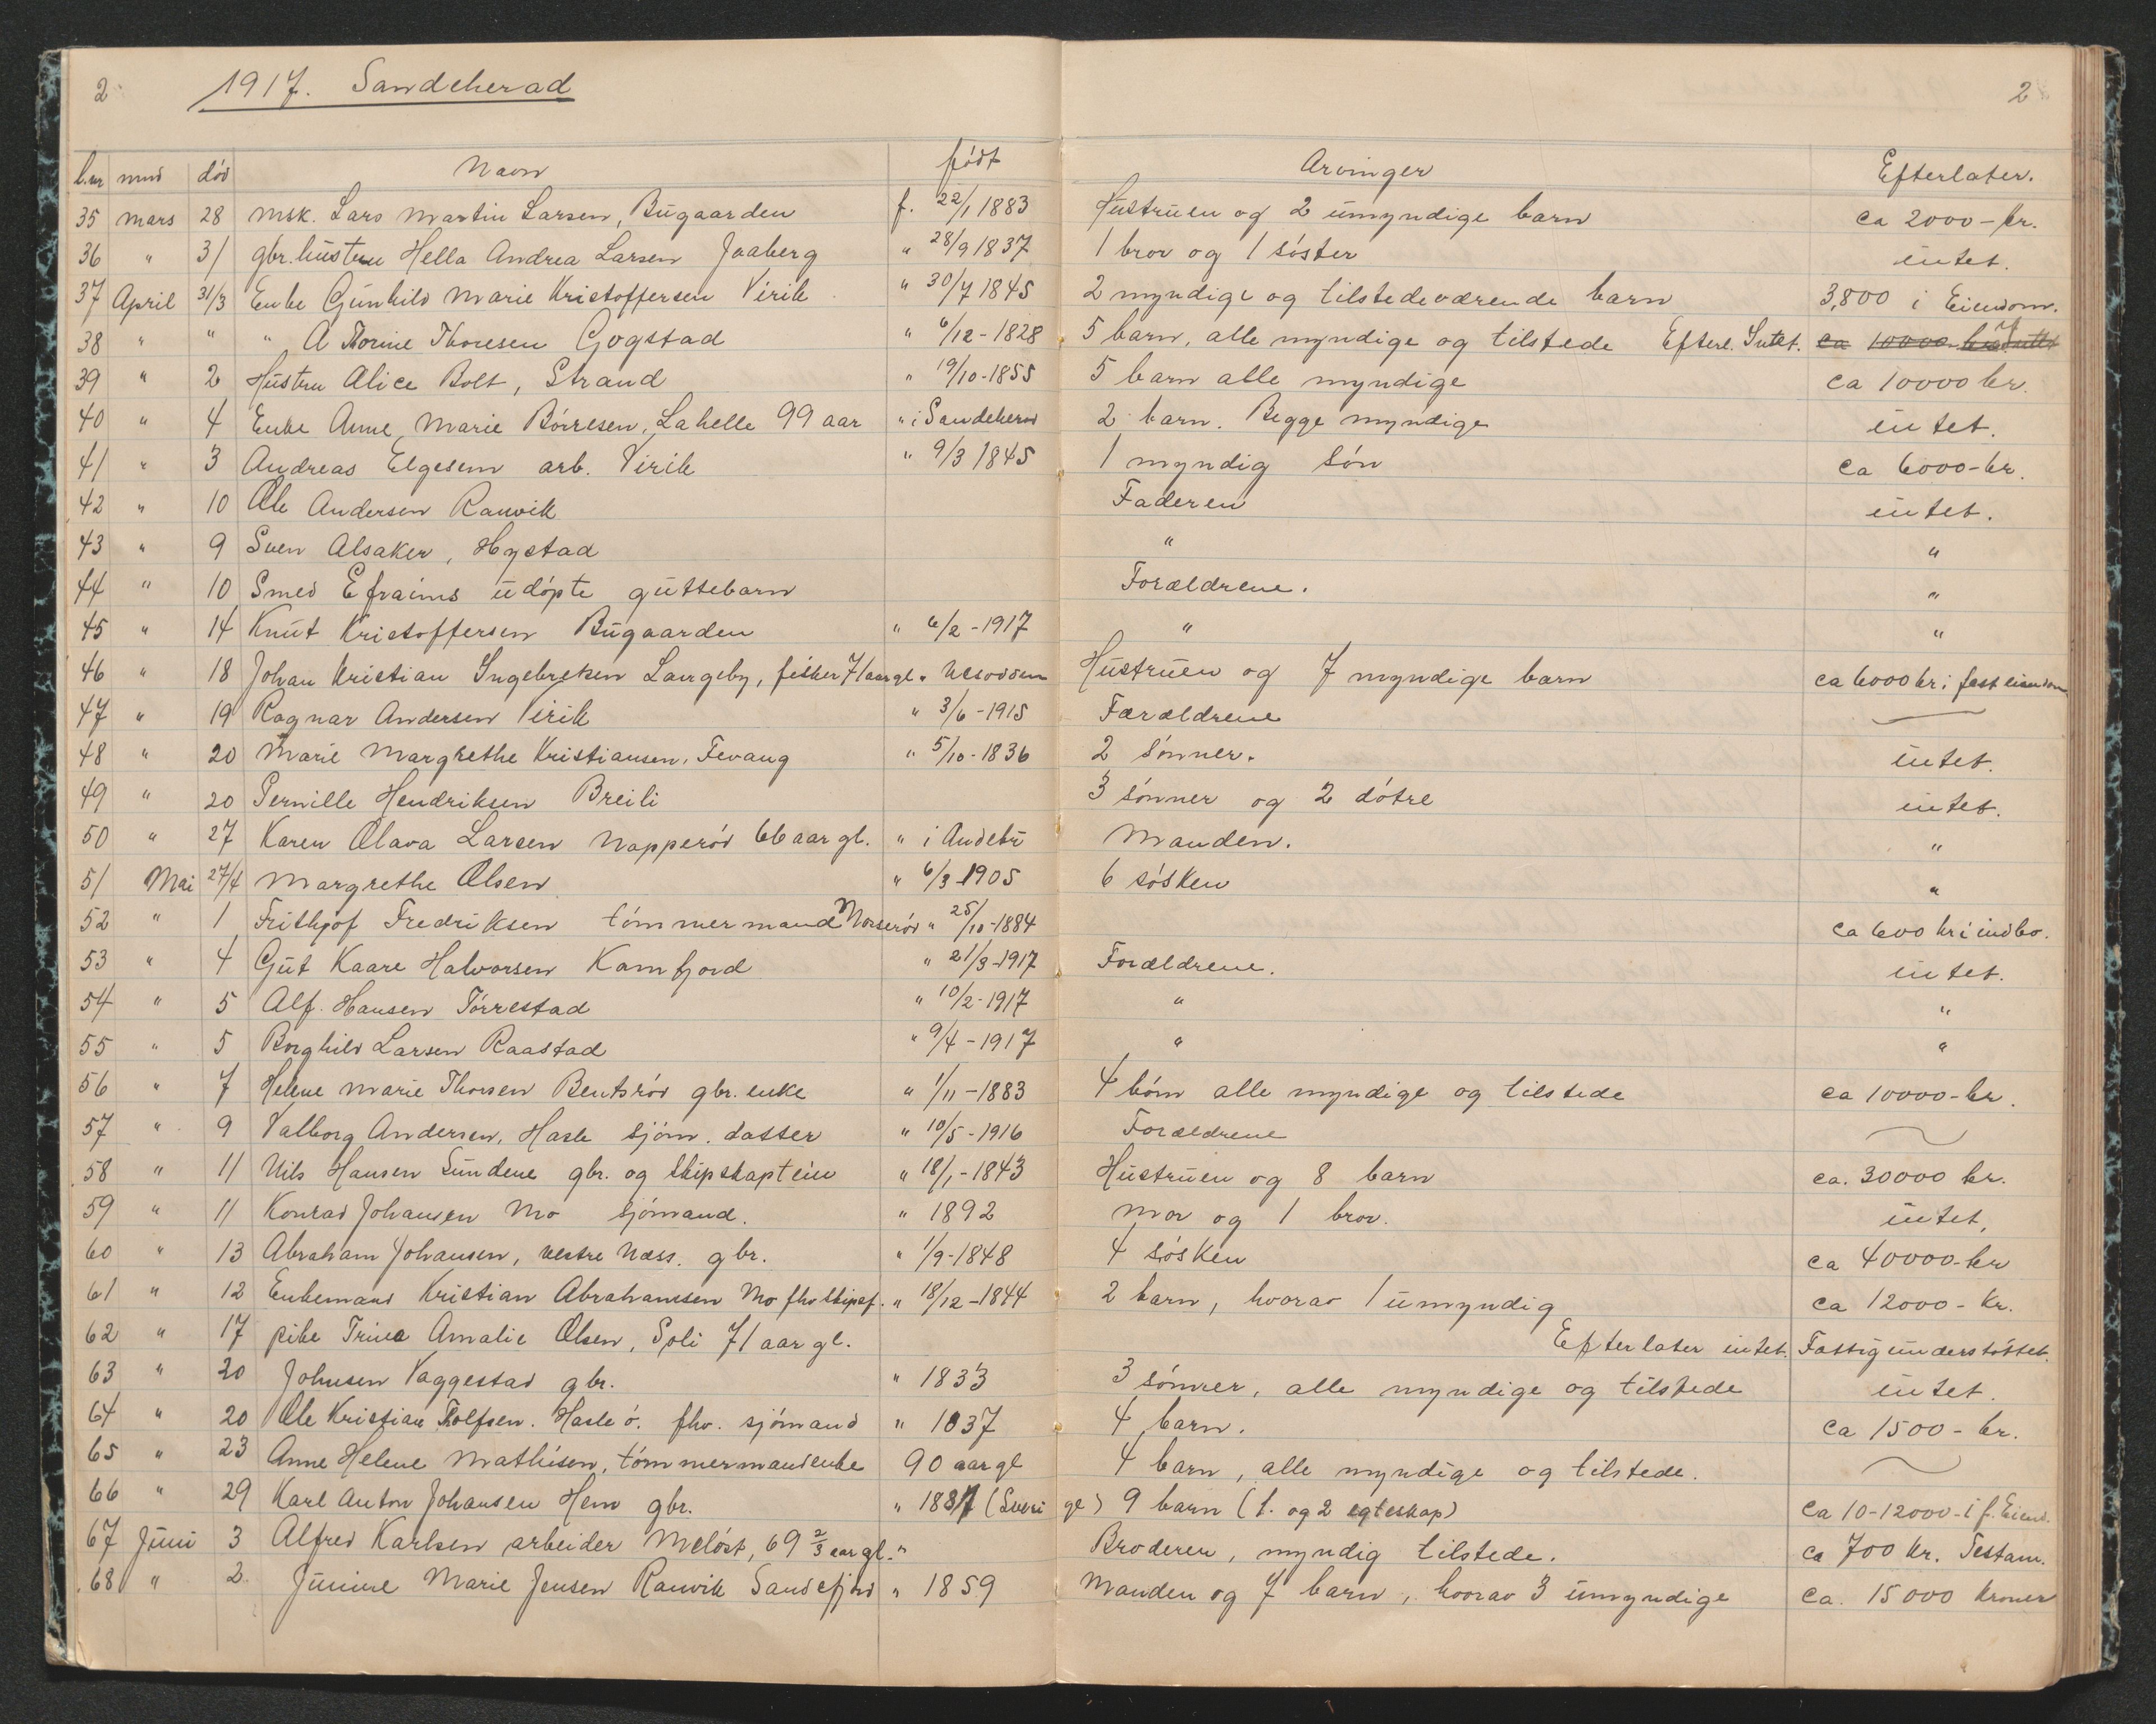 2 1917. Sandeherad 2
l.nr mnd död Navn födt Arvinger Efterlater.
35 Mars 28 Msk. Lars Martin Larsen, Bugaarden f. 22/1 1883 Hustruen og 2 umyndige barn ca 2000-kr.
36 " 31 gbr.hustru Hella Andrea Larsen Jaaberg " 28/9 1837 1 bror og 1 söster intet.
37 April 31/3 Enke Gunhild Marie Kristoffersen Virik " 30/7 1845 2 myndige og tilstedeværende barn 3,800 i Eiendom.
38 " " " A Thorine Thoresen Gogstad " 6/12-1828 5 barn, alle myndige og tilstede Efterl. Intet. ca 10000
39 " 2 Hustru Alice Bolt, Strand " 19/10-1855 5 barn alle myndige ca 10000 kr.
40 " 4 Enke Anne Marie Börresen, Lahelle 99 aar " i Sandeherad 2 barn. Begge myndige intet.
41 " 3 Andreas Elgesem arb. Virik " 9/3 1845 1 myndig sön ca 6000-kr.
42 " 10 Ole Andersen Ranvik Faderen intet.
43 " 9 Sven Alsaker, Hystad " "
44 " 10 Smed Efraims udöpte guttebarn Forældrene. "
45 " 14 Knut Kristoffersen Bugaarden " 6/2-1917 " "
46 " 18 Johan Kristian Ingebretsen Langeby, fisker 71 aar gl. " Nesodden Hustruen og 7 myndige barn ca 6000 kr i fast eiendom
47 " 19 Ragnar Andersen Virik " 3/6-1915 Forældrene
48 " 20 Marie Margrethe Kristiansen, Fevang " 5/10-1836 2 sönner. intet.
49 " 20 Pernille Hendriksen Breili 3 sönner og 2 dötre intet.
50 " 27 Karen Olava Larsen Napperöd 66 aar gl. " i Andebu Manden. "
51 Mai 27/4 Margrethe Olsen " 6/3-1905 6 sösken "
52 " 1 Frithjof Fredriksen tömmermand Norseröd " 25/10-1884 ca 600 kr i indbo.
53 " 4 Gut Kaare Halvorsen Kamfjord " 21/3-1917 Forældrene. intet.
54 " 5 Alf. Hansen Törrestad " 10/2-1917 " "
55 " 5 Borghild Larsen Raastad " 9/4-1917 " "
56 " 7 Helene Marie Thorsen Bentsröd gbr. enke " 1/11-1883 4 börn alle myndige og tilstede ca 10000-kr.
57 " 9 Valborg Andersen, Hasle sjöm. datter " 10/5-1916 Forældrene
58 " 11 Nils Hansen Sundene gbr. og skipskaptein " 18/1-1843 Hustruen og 8 barn ca. 30000 kr.
59 " 11 Konrad Johansen Mo sjömand. " 1892 Mor og 1 bror. intet,
60 " 13 Abraham Johansen, vestre Næss. gbr. " 1/9-1848 4 sösken ca 40000-kr
61 " 12 Enkemand Kristian Abrahamsen Mo fhv skipsf. " 18/12-1844 2 barn, hvorav 1 umyndig ca 12000-Kr.
62 " 17 pike Trine Amalie Olsen, Soli 71 aar gl. Efterlater intet. Fattigunderstöttet.
63 " 20 Johnsen Vaggestad gbr. " 1833 3 sönner, alle myndige og tilstede intet.
64 " 20 Ole Kristian Rolfsen. Hasle ö. fhv. sjömand " 1837 4 barn. ca 1500-kr.
65 " 23 Anne Helene Mathisen, tömmermandenke 90 aar gl 4 barn, alle myndige og tilstede.
66 " 29 Karl Anton Johansen Hem gbr. " 1837 (Sverige) 9 barn (1. og 2 egteskap) ca 10-12000-i f. Eiend.
67 Juni 3 Alfred Karlsen arbeider Melöst, 69 2/3 aar gl. " Broderen, myndig tilstede. ca 700 kr. Testam.
68 " 2. Junine Marie Jensen Ranvik Sandefjord " 1859 Manden og 7 barn, hvorav 3 umyndige ca. 15000 kroner